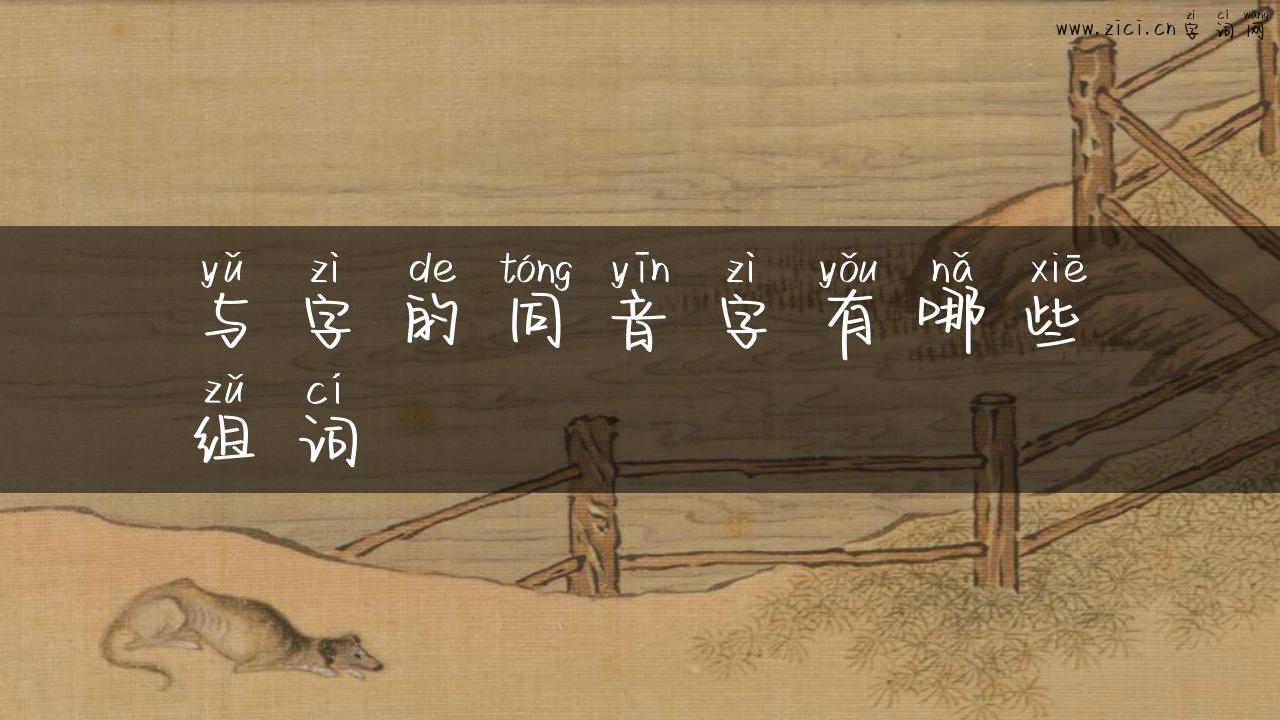 zì cí wǎng
www.zici.cn字词网
yǔ zì de tóng yīn zì yǒu nǎ xiē
与字的同音字有哪些
zǔ cí
组词